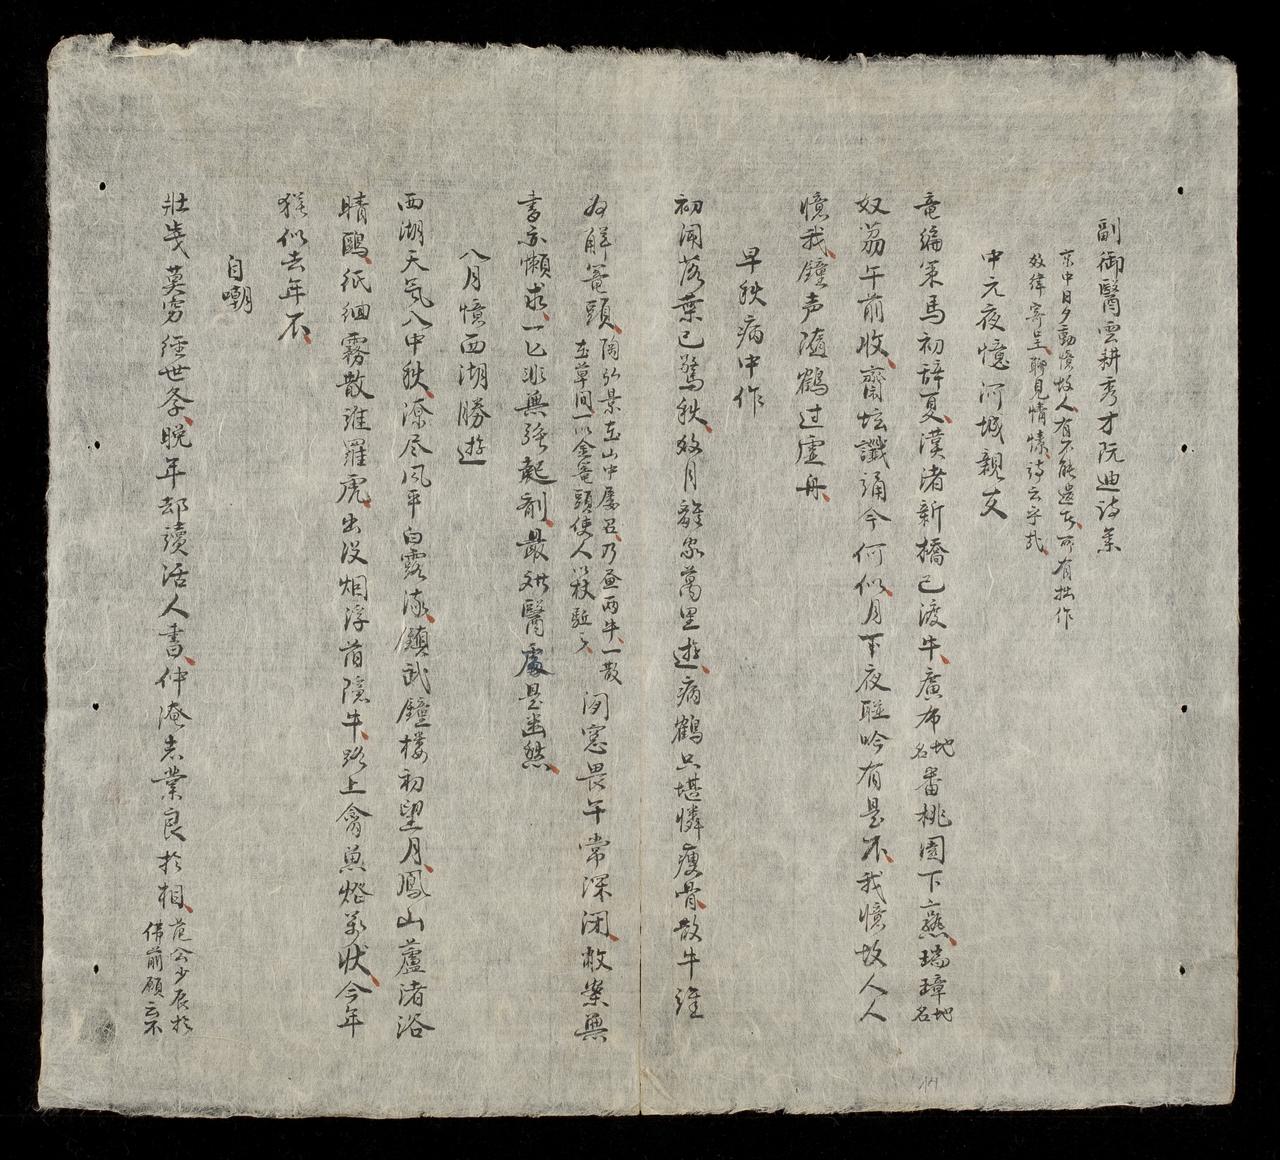 副御醫雲耕秀才阮迪詩集
京中日夕動懷故人有不能遣去所有拙作
效緯寄呈聊見情愫詩云乎哉
中元夜憶河城親友
竜編策馬初辞夏漢渚新橋已渡牛廣布地名番桃園下熹瑞璋地名
奴荔午前收齋坛讖誦今何似月下夜聯吟有是不我憶故人人
憶我鐘声隨鶴过虛舟
早秋病中作
初聞落葉已驚秋效月離家萬里遊病鶴只堪憐瘦骨散牛誰
為解篭頭陶弘景在山中屢召乃画两牛一散在草間一以金篭頭使人以杖駈之閉窓畏午常深闭敝案無
書亦懶求一匕泝無强起剤最妙醫處是幽愁
八月憶西湖勝遊
西湖天氣入中秋潦尽风平白露流鎮武鐘楼初望月鳳山蘆渚浴
晴鷗紙細霧散誰羅虎出没烟浮首隱牛路上禽魚燈萬狀今年
猶似去年不
自嘲
壯歲莫窮經世条晚年却讀活人書仲淹志業良於相范公少辰於佛前願云不